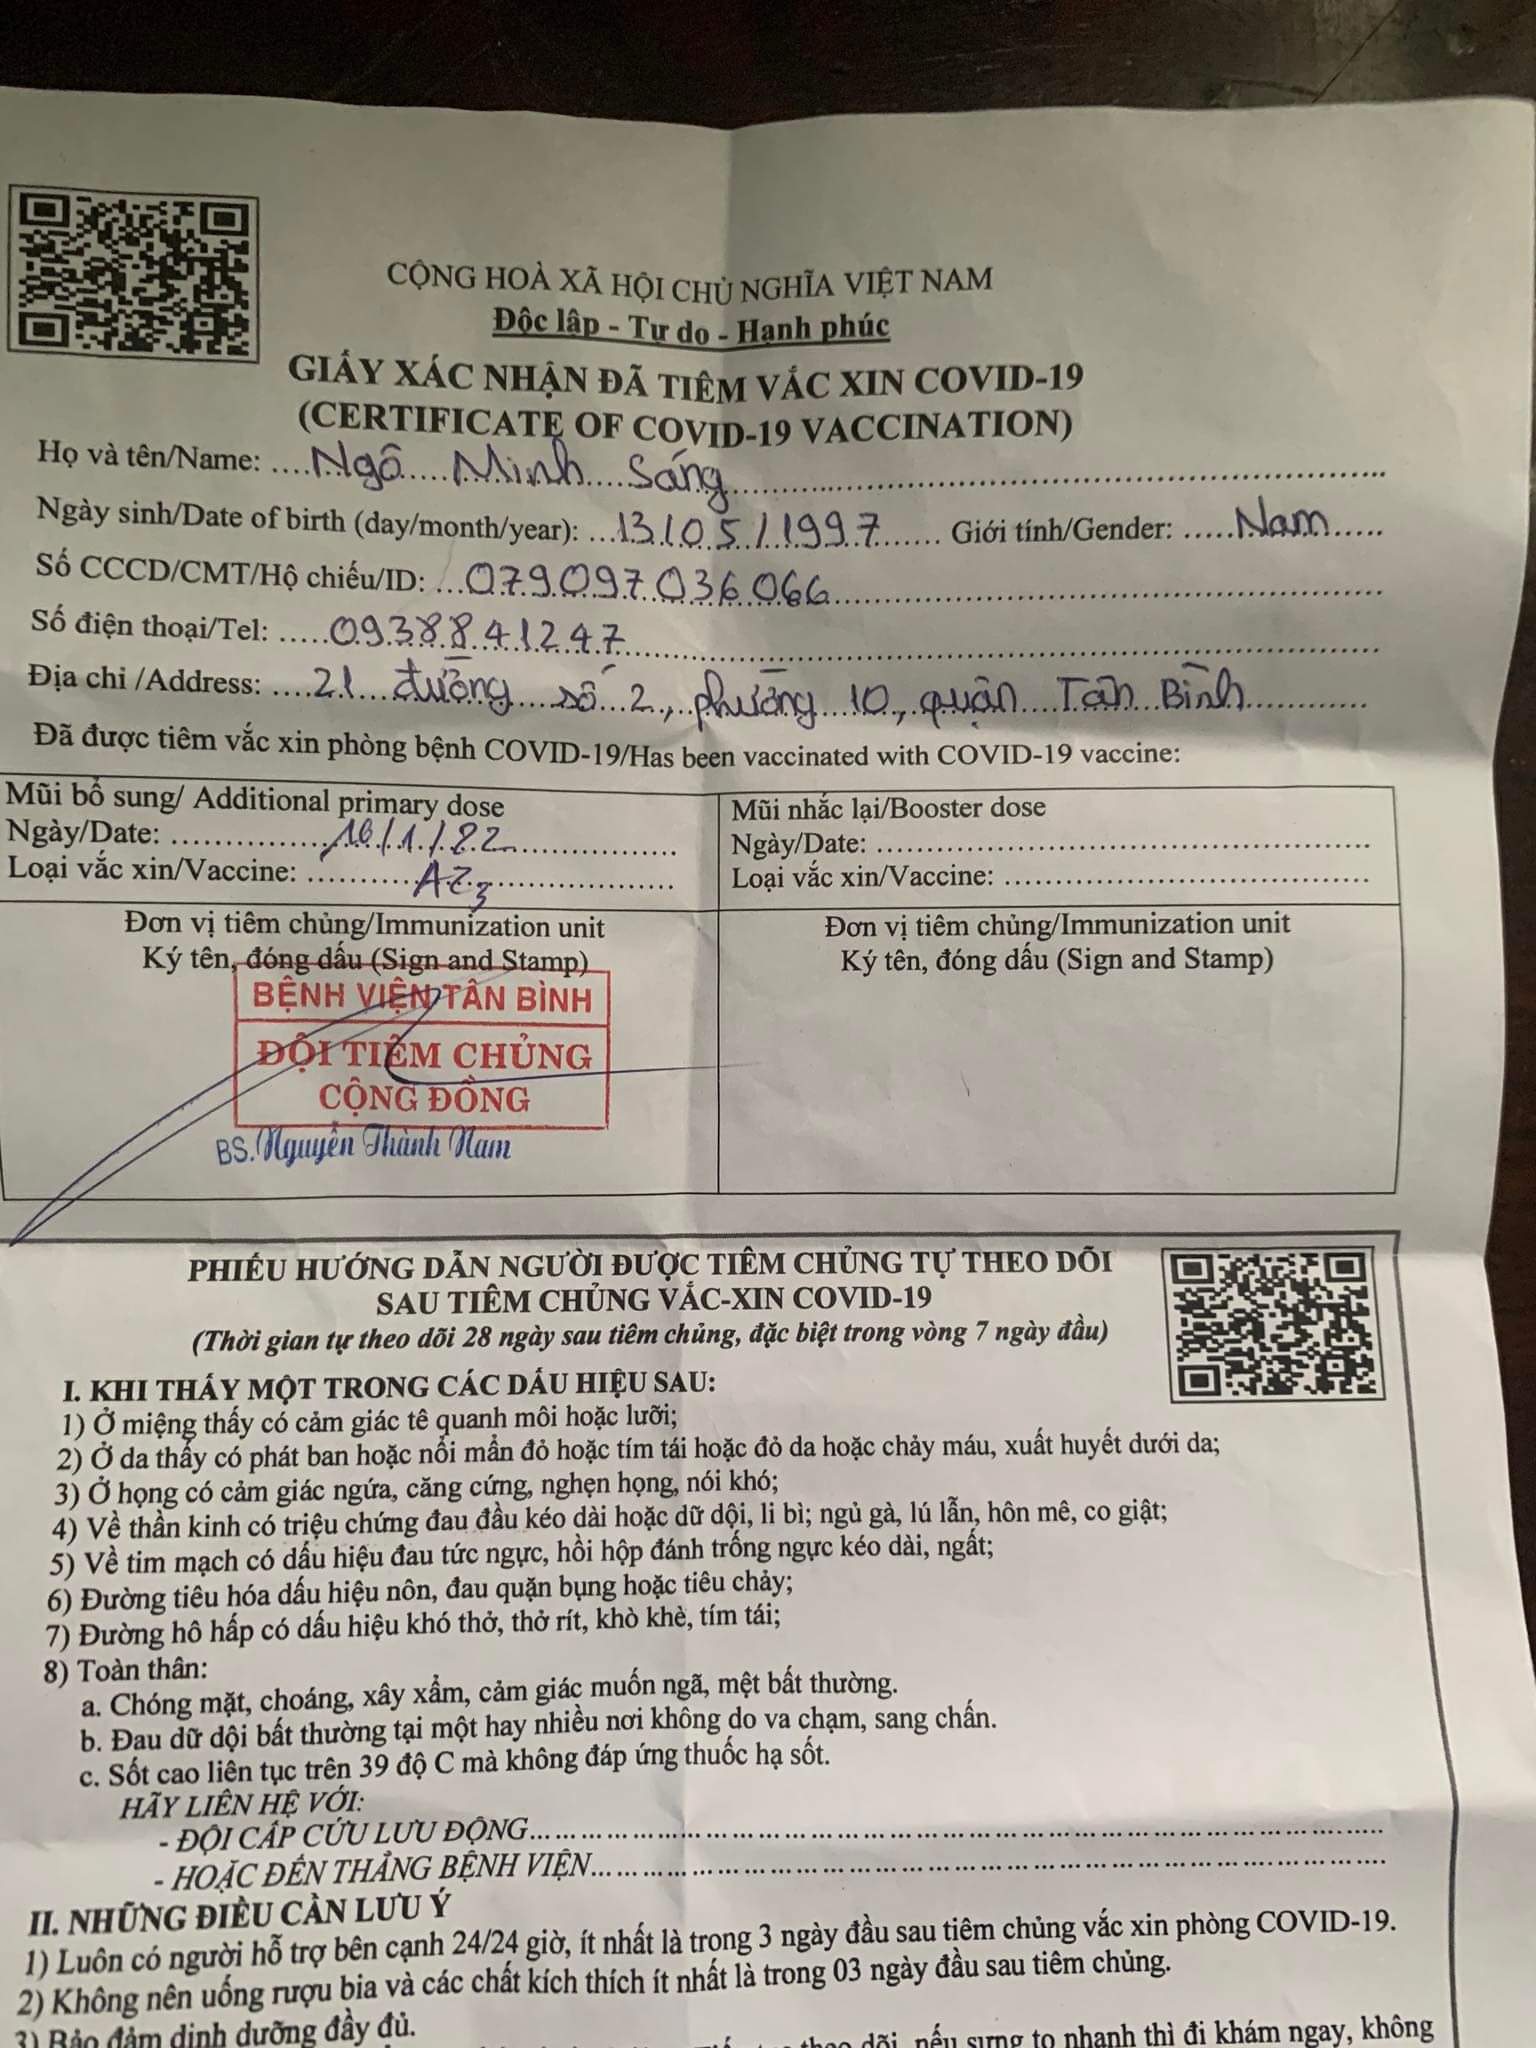 CỘNG HOÀ XÃ HỘI CHỦ NGHĨA VIỆT NAM
Độc lập - Tự do - Hạnh phúc
GIẤY XÁC NHẬN ĐÃ TIÊM VẮC XIN COVID-19
(CERTIFICATE OF COVID-19 VACCINATION)
Họ và tên/Name: Ngô Minh Sáng
Ngày sinh/Date of birth (day/month/year): 13/05/1997 Giới tính/Gender: Nam
Số CCCD/CMT/Hộ chiếu/ID: 079097036066
Số điện thoại/Tel: 0938841247
Địa chỉ /Address: 21 đường số 2, phường 10, quận Tân Bình
Đã được tiêm vắc xin phòng bệnh COVID-19/Has been vaccinated with COVID-19 vaccine:
Mũi bổ sung/ Additional primary dose
Ngày/Date: 10/1/22
Loại vắc xin/Vaccine: AZ3
Đơn vị tiêm chủng/Immunization unit
Ký tên, đóng dấu (Sign and Stamp)
BỆNH VIỆN TÂN BÌNH
ĐỘI TIÊM CHỦNG
CỘNG ĐỒNG
BS. Nguyễn Thành Nam
Mũi nhắc lại/Booster dose
Ngày/Date:
Loại vắc xin/Vaccine:
Đơn vị tiêm chủng/Immunization unit
Ký tên, đóng dấu (Sign and Stamp)
PHIẾU HƯỚNG DẪN NGƯỜI ĐƯỢC TIÊM CHỦNG TỰ THEO DÕI
SAU TIÊM CHỦNG VẮC-XIN COVID-19
(Thời gian tự theo dõi 28 ngày sau tiêm chủng, đặc biệt trong vòng 7 ngày đầu)
I. KHI THẤY MỘT TRONG CÁC DẤU HIỆU SAU:
1) Ở miệng thấy có cảm giác tê quanh môi hoặc lưỡi;
2) Ở da thấy có phát ban hoặc nổi mẩn đỏ hoặc tím tái hoặc đỏ da hoặc chảy máu, xuất huyết dưới da;
3) Ở họng có cảm giác ngứa, căng cứng, nghẹn họng, nói khó;
4) Về thần kinh có triệu chứng đau đầu kéo dài hoặc dữ dội, li bì; ngủ gà, lú lẫn, hôn mê, co giật;
5) Về tim mạch có dấu hiệu đau tức ngực, hồi hộp đánh trống ngực kéo dài, ngất;
6) Đường tiêu hóa dấu hiệu nôn, đau quặn bụng hoặc tiêu chảy;
7) Đường hô hấp có dấu hiệu khó thở, thở rít, khò khè, tím tái;
8) Toàn thân:
a. Chóng mặt, choáng, xây xẩm, cảm giác muốn ngã, mệt bất thường.
b. Đau dữ dội bất thường tại một hay nhiều nơi không do va chạm, sang chấn.
c. Sốt cao liên tục trên 39 độ C mà không đáp ứng thuốc hạ sốt.
HÃY LIÊN HỆ VỚI:
- ĐỘI CẤP CỨU LƯU ĐỘNG
- HOẶC ĐẾN THẲNG BỆNH VIỆN
II. NHỮNG ĐIỀU CẦN LƯU Ý
1) Luôn có người hỗ trợ bên cạnh 24/24 giờ, ít nhất là trong 3 ngày đầu sau tiêm chủng vắc xin phòng COVID-19.
2) Không nên uống rượu bia và các chất kích thích ít nhất là trong 03 ngày đầu sau tiêm chủng.
3) Bảo đảm dinh dưỡng đầy đủ.
theo dõi, nếu sưng to nhanh thì đi khám ngay, không